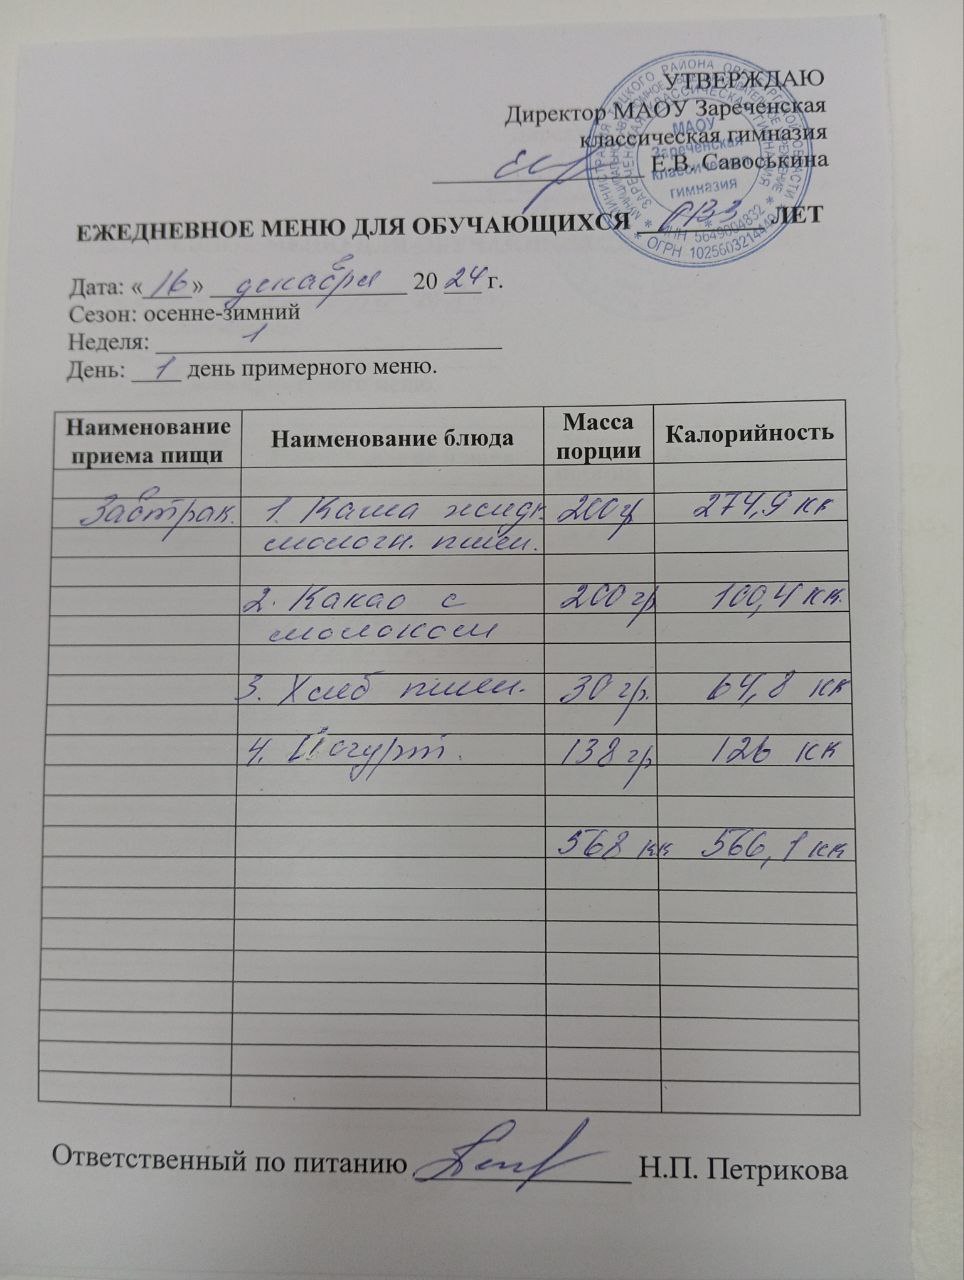 УТВЕРЖДАЮ
Директор МАОУ Зареченская
классическая гимназия
Е.В. Савоськина
МАОУ
Зареченская
классическая
гимназия
ЕЖЕДНЕВНОЕ МЕНЮ ДЛЯ ОБУЧАЮЩИХСЯ ОВЗ ЛЕТ
Дата: «16» декабря 2024 г.
Сезон: осенне-зимний
Неделя: 1
День: 1 день примерного меню.
Наименование приема пищи Наименование блюда Масса порции Калорийность
Завтрак. 1. Каша жидк. 200 гр 274,9 кк
молочн. пшен.
2. Какао с 200 гр 100,4 кк.
молоком
3. Хлеб пшен. 30 гр. 64,8 кк
4. Йогурт. 138 гр 126 кк
568 кк 566,1 кк
Ответственный по питанию Н.П. Петрикова